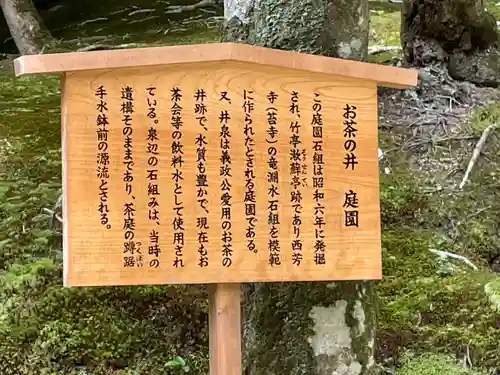 お茶の井　庭園
この庭園石組は昭和六年に発掘
され、竹亭漱蘇亭跡であり西芳
寺（苔寺）の竜淵水石組を模範
に作られたとされる庭園である。
又、井泉は義政公愛用のお茶の
井跡で、水質も豊かで、現在もお
茶会等の飲料水として使用され
ている。泉辺の石組みは、当時の
遺構そのままであり、茶庭の蹲踞
つくばい
手水鉢前の源流とされる。